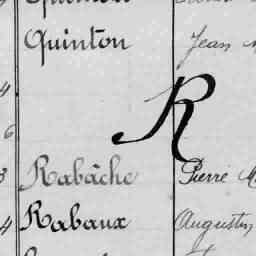 Quinton Jean
R
Rabâche Pierre M
Rabaux Augustin